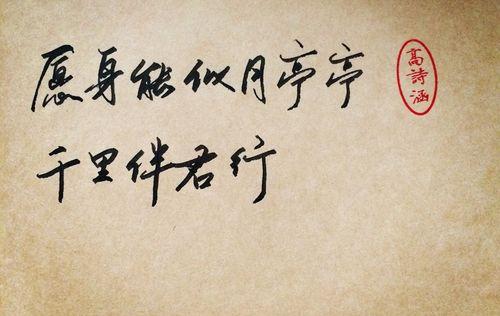 愿身能似月亭亭
千里伴君行
高詩涵